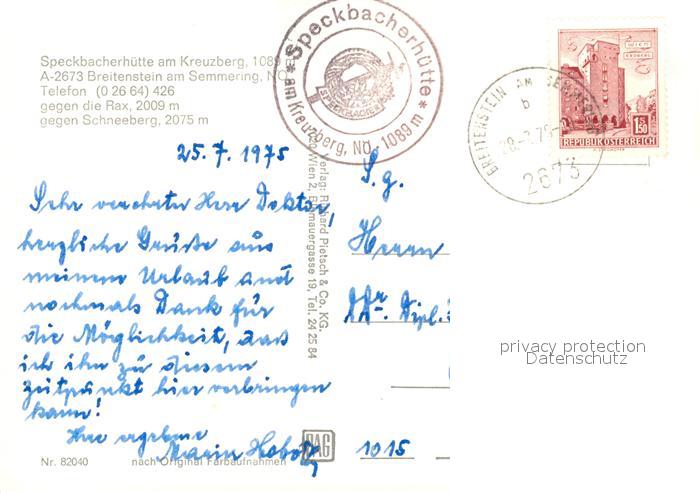 Speckbacherhütte am Kreuzberg, 1089
A-2673 Breitenstein am Semmering, NÖ
Telefon (0 26 64) 426
gegen die Rax, 2009 m
gegen Schneeberg, 2075 m
* Speckbacherhütte *
am Kreuzberg, NÖ. 1089 m
SPECKBACHER
BREITENSTEIN AM SEMMERING
b
2673
WIEN
1.50
REPUBLIK ÖSTERREICH
25.7.1975
Sehr verehrter Herr Doktor,
herzliche Grüße aus
meinem Urlaub und
nochmals Dank für
die Möglichkeit, daß
ich ihn zu diesem
Zeitpunkt hier verbringen
kann!
Ihre ergebene
Maria
Verlag: Richard Pietsch & Co. KG.
Wien 2, 19, Tel. 24 25 84
S.g.
Herrn
Dr. Dipl.
1015
PAG
Nr. 82040
nach Original Farbaufnahmen
privacy protection
Datenschutz